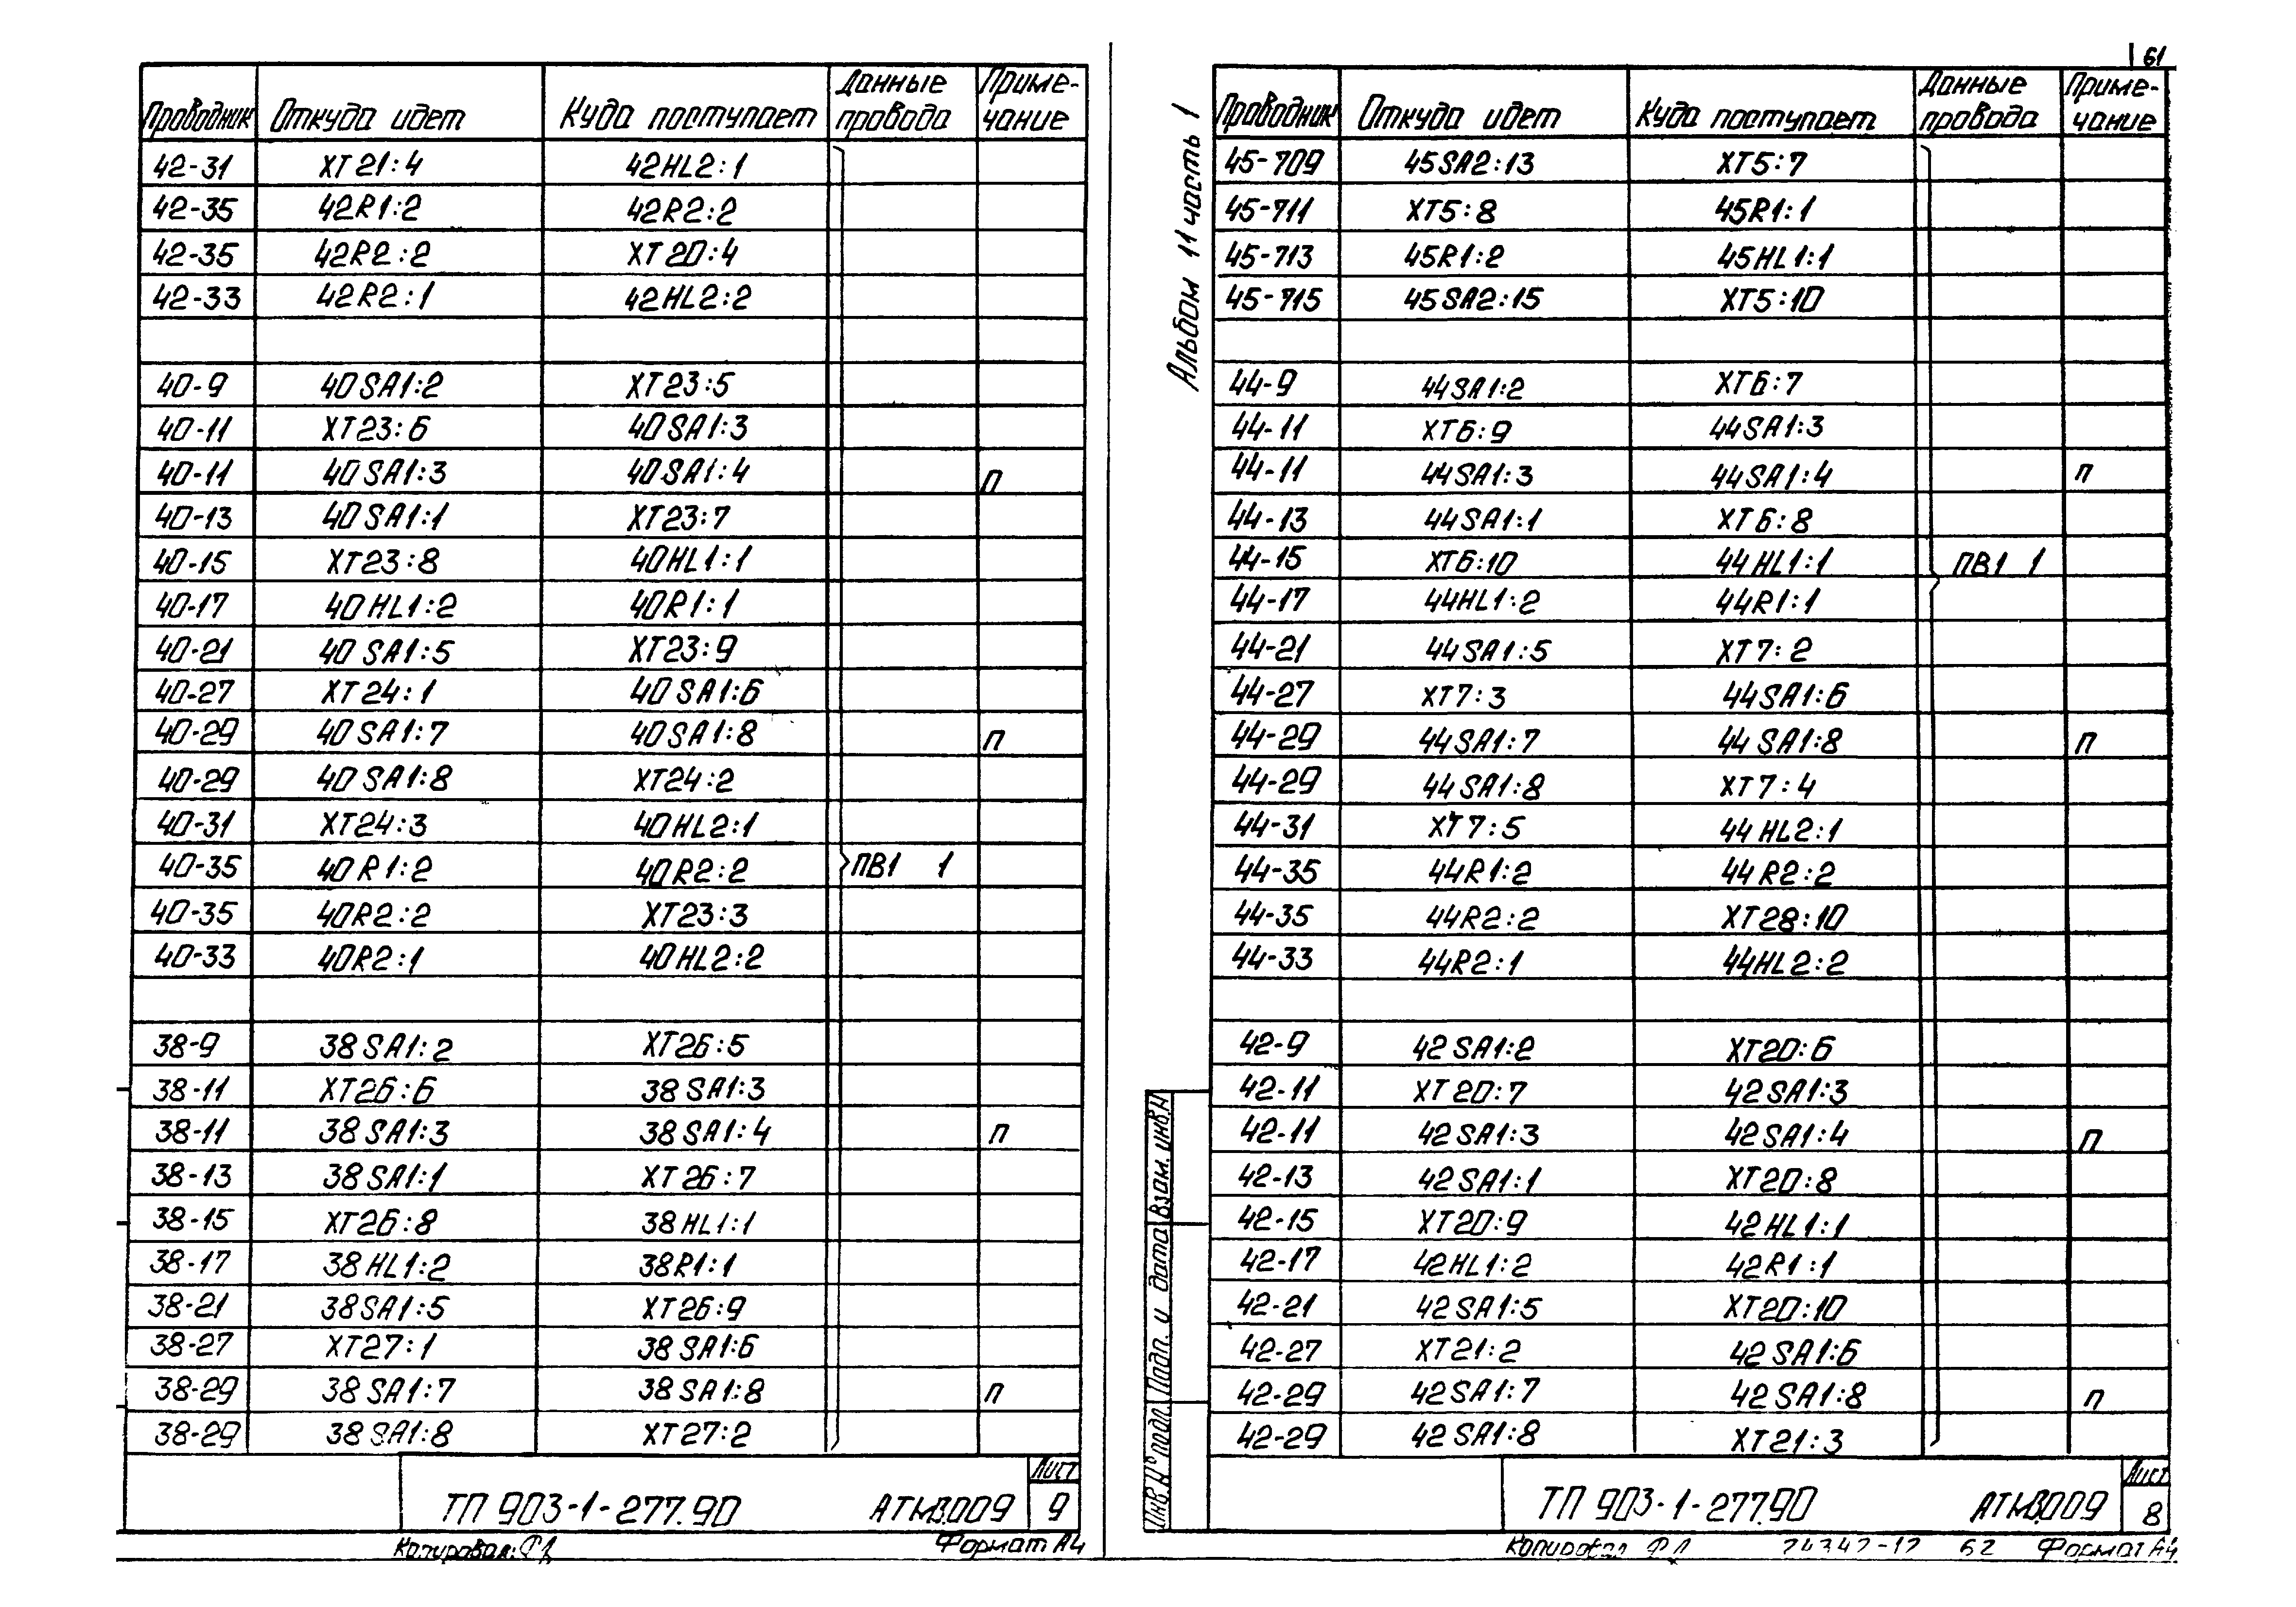 Проводник Откуда идет Куда поступает Данные провода Приме-чание
42-31 ХТ21:4 42HL2:1
42-35 42R1:2 42R2:2
42-35 42R2:2 ХТ20:4
42-33 42R2:1 42HL2:2
40-9 40SA1:2 ХТ23:5
40-11 ХТ23:6 40SA1:3
40-11 40SA1:3 40SA1:4 п
40-13 40SA1:1 ХТ23:7
40-15 ХТ23:8 40HL1:1
40-17 40HL1:2 40R1:1
40-21 40SA1:5 ХТ23:9
40-27 ХТ24:1 40SA1:6
40-29 40SA1:7 40SA1:8 п
40-29 40SA1:8 ХТ24:2
40-31 ХТ24:3 40HL2:1
40-35 40R1:2 40R2:2 ПВ1 1
40-35 40R2:2 ХТ23:3
40-33 40R2:1 40HL2:2
38-9 38SA1:2 ХТ26:5
38-11 ХТ26:6 38SA1:3
38-11 38SA1:3 38SA1:4 п
38-13 38SA1:1 ХТ26:7
38-15 ХТ26:8 38HL1:1
38-17 38HL1:2 38R1:1
38-21 38SA1:5 ХТ26:9
38-27 ХТ27:1 38SA1:6
38-29 38SA1:7 38SA1:8 п
38-29 38SA1:8 ХТ27:2
ТП 903-1-277.90 АТМ3.009 Лист 9
Копировал: Формат А4
61
Альбом 11 часть 1
Проводник Откуда идет Куда поступает Данные провода Приме-чание
45-709 45SA2:13 ХТ5:7
45-711 ХТ5:8 45R1:1
45-713 45R1:2 45HL1:1
45-715 45SA2:15 ХТ5:10
44-9 44SA1:2 ХТ6:7
44-11 ХТ6:9 44SA1:3
44-11 44SA1:3 44SA1:4 п
44-13 44SA1:1 ХТ6:8
44-15 ХТ6:10 44HL1:1 ПВ1 1
44-17 44HL1:2 44R1:1
44-21 44SA1:5 ХТ7:2
44-27 ХТ7:3 44SA1:6
44-29 44SA1:7 44SA1:8 п
44-29 44SA1:8 ХТ7:4
44-31 ХТ7:5 44HL2:1
44-35 44R1:2 44R2:2
44-35 44R2:2 ХТ28:10
44-33 44R2:1 44HL2:2
42-9 42SA1:2 ХТ20:6
42-11 ХТ20:7 42SA1:3
42-11 42SA1:3 42SA1:4 п
42-13 42SA1:1 ХТ20:8
42-15 ХТ20:9 42HL1:1
42-17 42HL1:2 42R1:1
42-21 42SA1:5 ХТ20:10
42-27 ХТ21:2 42SA1:6
42-29 42SA1:7 42SA1:8 п
42-29 42SA1:8 ХТ21:3
Инв.№подл. Подп. и дата Взам.инв.№
ТП 903-1-277.90 АТМ3.009 Лист 8
Копировал 24347-12 62 Формат А4